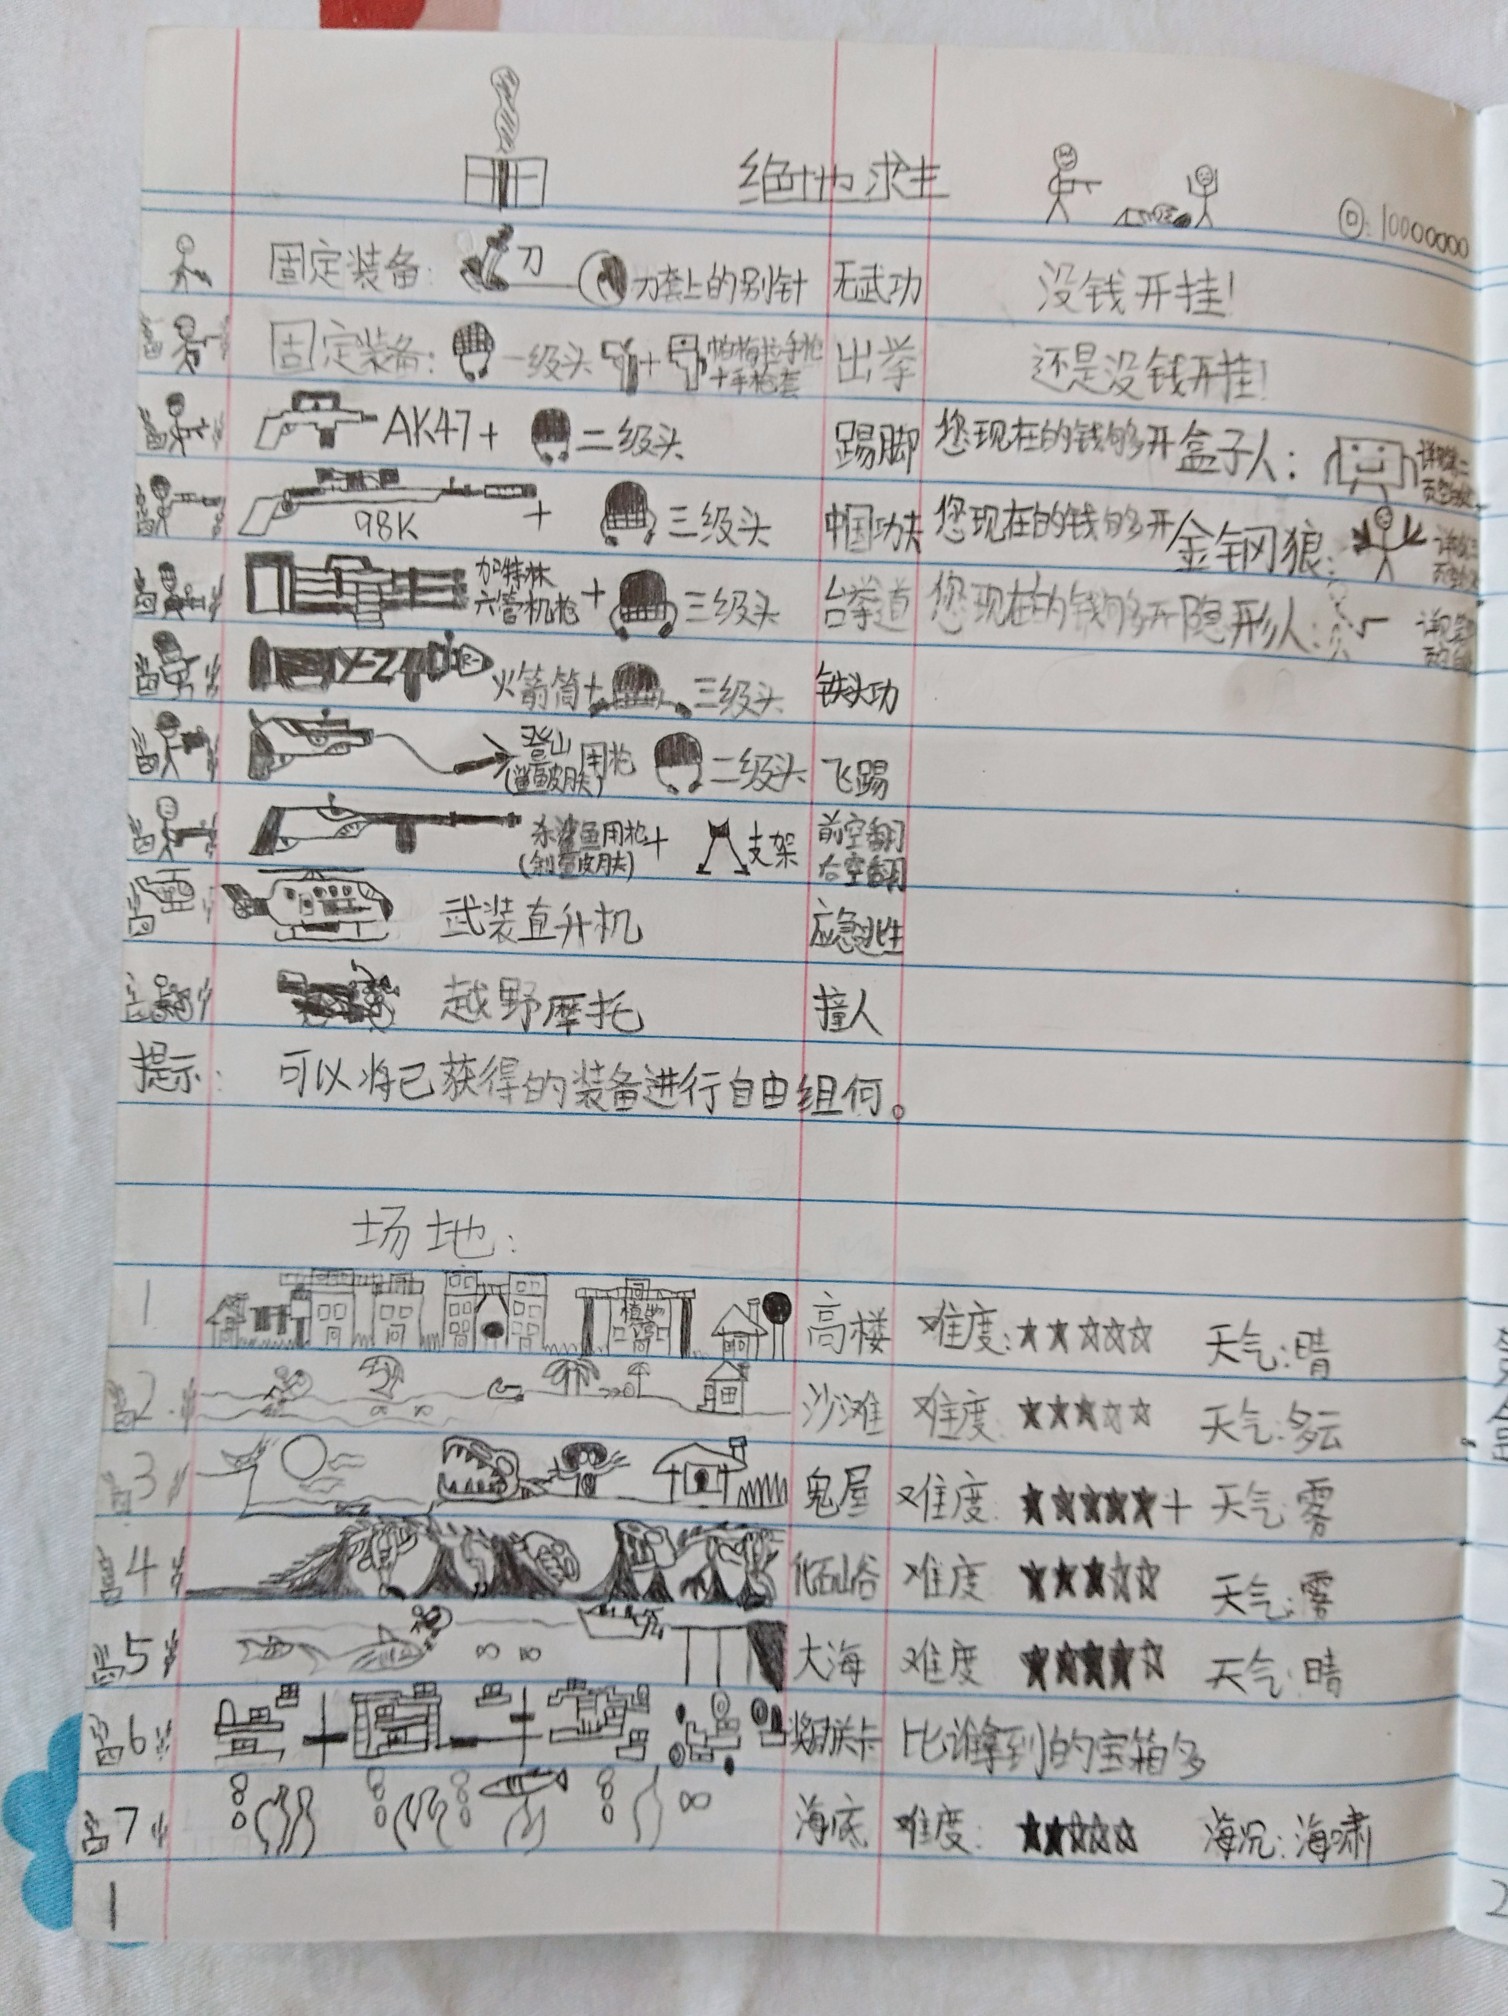 绝地求生
回:10000000
固定装备: 刀 刀套上的别针 无武功 没钱开挂!
固定装备: 一级头 + 帕梅拉手枪+手枪套 出拳 还是没钱开挂!
AK47+ 二级头 踢脚 您现在的钱够开盒子人:
98K + 三级头 中国功夫 您现在的钱够开金钢狼:
加特林六管机枪 + 三级头 台拳道 您现在的钱够开隐形人:
Y-Z 火箭筒+ 三级头 铁头功
登山用枪(鲨鱼皮肤) 二级头 飞踢
杀鲨鱼用枪+ 支架 前空翻
武装直升机 应急逃生
越野摩托 撞人
提示: 可以将已获得的装备进行自由组何。
场地:
1 植物 高楼 难度:★★☆☆☆ 天气:晴
2 沙滩 难度:★★★☆☆ 天气:多云
3 鬼屋 难度:★★★★★+ 天气:雾
4 化石山谷 难度 ★★★☆☆ 天气:雾
5 大海 难度 ★★★★☆ 天气:晴
6 奖励关卡 比谁拿到的宝箱多
7 海底 难度:★★☆☆☆ 海况:海啸
1
2